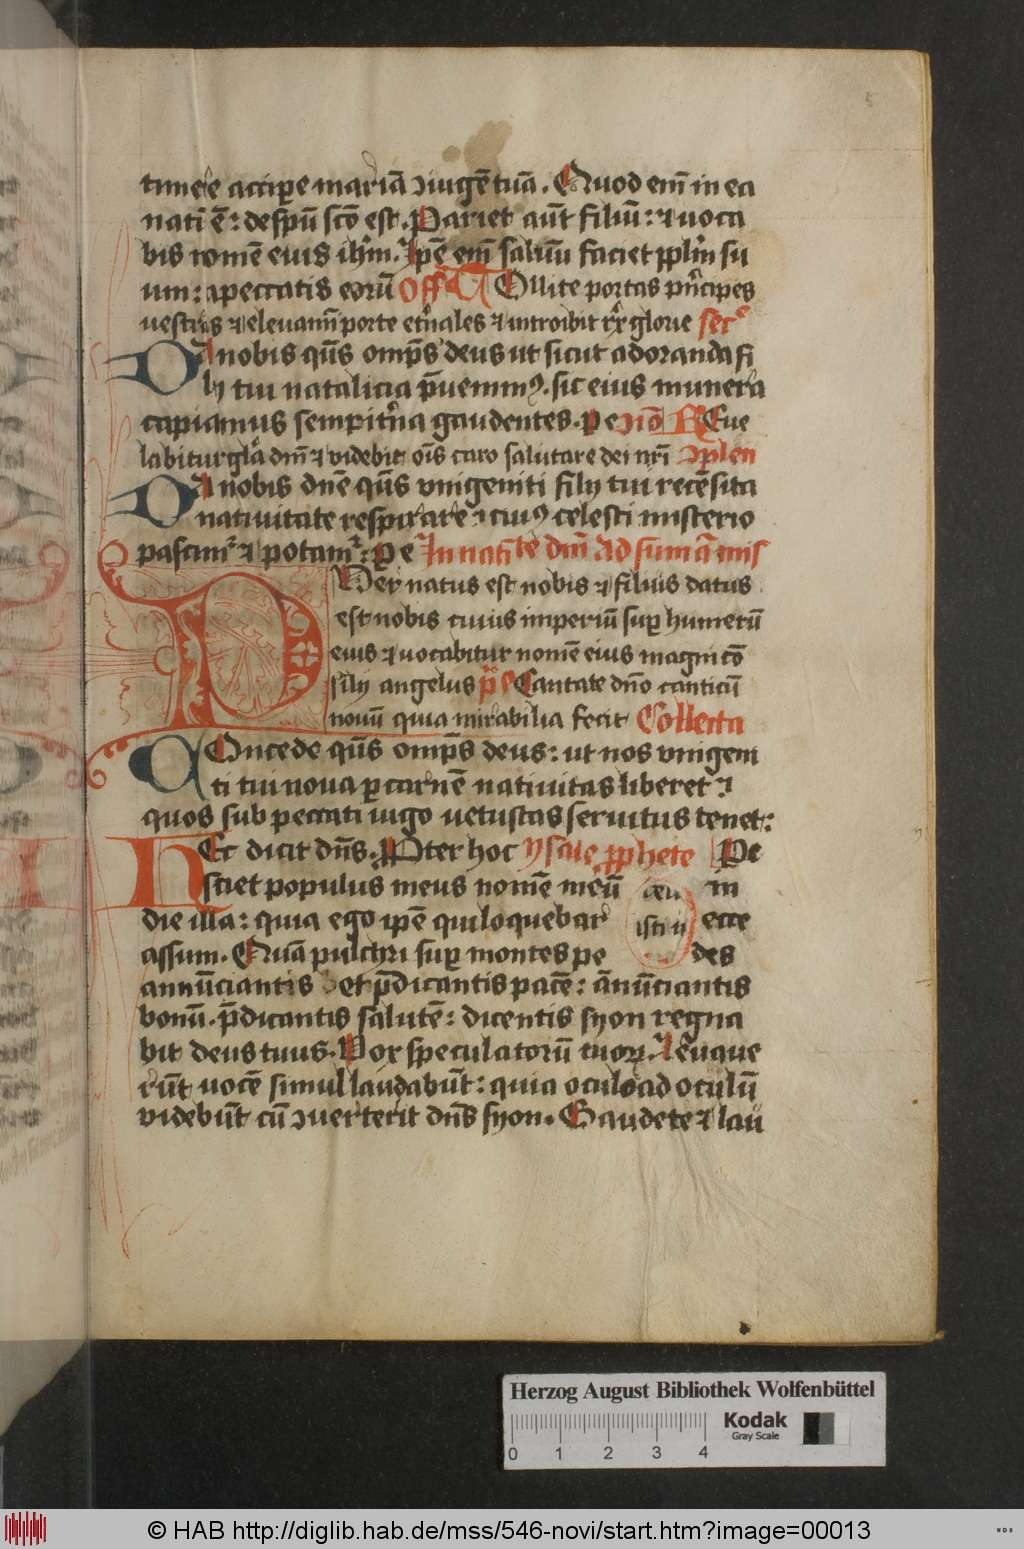 timere accipe mariā ꝯiugē tuā. Quod em̄ in ea
natū ē: de spū scō est. Pariet aūt filiū: ⁊ voca
bis nomē eius ihm̄. Ipē em̄ saluū faciet ꝓplm̄ su
um: a peccatis eorū Off Tollite portas pn̄cipes
vestras ⁊ eleuamī porte et̄nales ⁊ introibit rex glorie Secͤ
DA nobis qūs omps̄ deus ut sicut adoranda fi
lij tui natalicia p̄uenimꝰ. sic eius munera
capiamus sempit̄na gaudentes. Pe ꝯiō Reue
labitur gl̄a dn̄i ⁊ videbit oīs caro salutare dei nr̄i ꝯplen
DA nobis dn̄e qūs vnigeniti filij tui recēsita
natiuitate respirare ⁊ cuiꝰ celesti misterio
pascimur ⁊ potamur: Pe In nati͏̄te dn̄i Ad summā mis
PUer natus est nobis ⁊ filius datus
est nobis cuius imperiū suꝑ humerū
eius ⁊ vocabitur nomē eius magni cō
silij angelus pͥs Cantate dn̄o canticū
nouū quia mirabilia fecit Collecta
COncede qūs omps̄ deus: ut nos vnigeni
ti tui noua ꝑ carnē natiuitas liberet ⁊
quos sub peccati iugo vetustas seruitus tenet:
HEc dicit dn̄s. Pter hoc ysaie ꝓphete Pe
sciet populus meus nomē meū in
die illa: quia ego ipē qui loquebar ecce
assum. Quā pulchri suꝑ montes pe des
annūciantis et p̄dicantis pacē: ānūciantis
bonū. p̄dicantis salutē: dicentis syon regna
bit deus tuus. Vox speculatorū tuoꝝ. leuaue
rūt vocē simul laudabūt: quia oculo ad oculū
videbūt cū ꝯuerterit dn̄s syon. Gaudete ⁊ lau
Herzog August Bibliothek Wolfenbüttel
Kodak
Gray Scale
0 1 2 3 4
© HAB http://diglib.hab.de/mss/546-novi/start.htm?image=00013